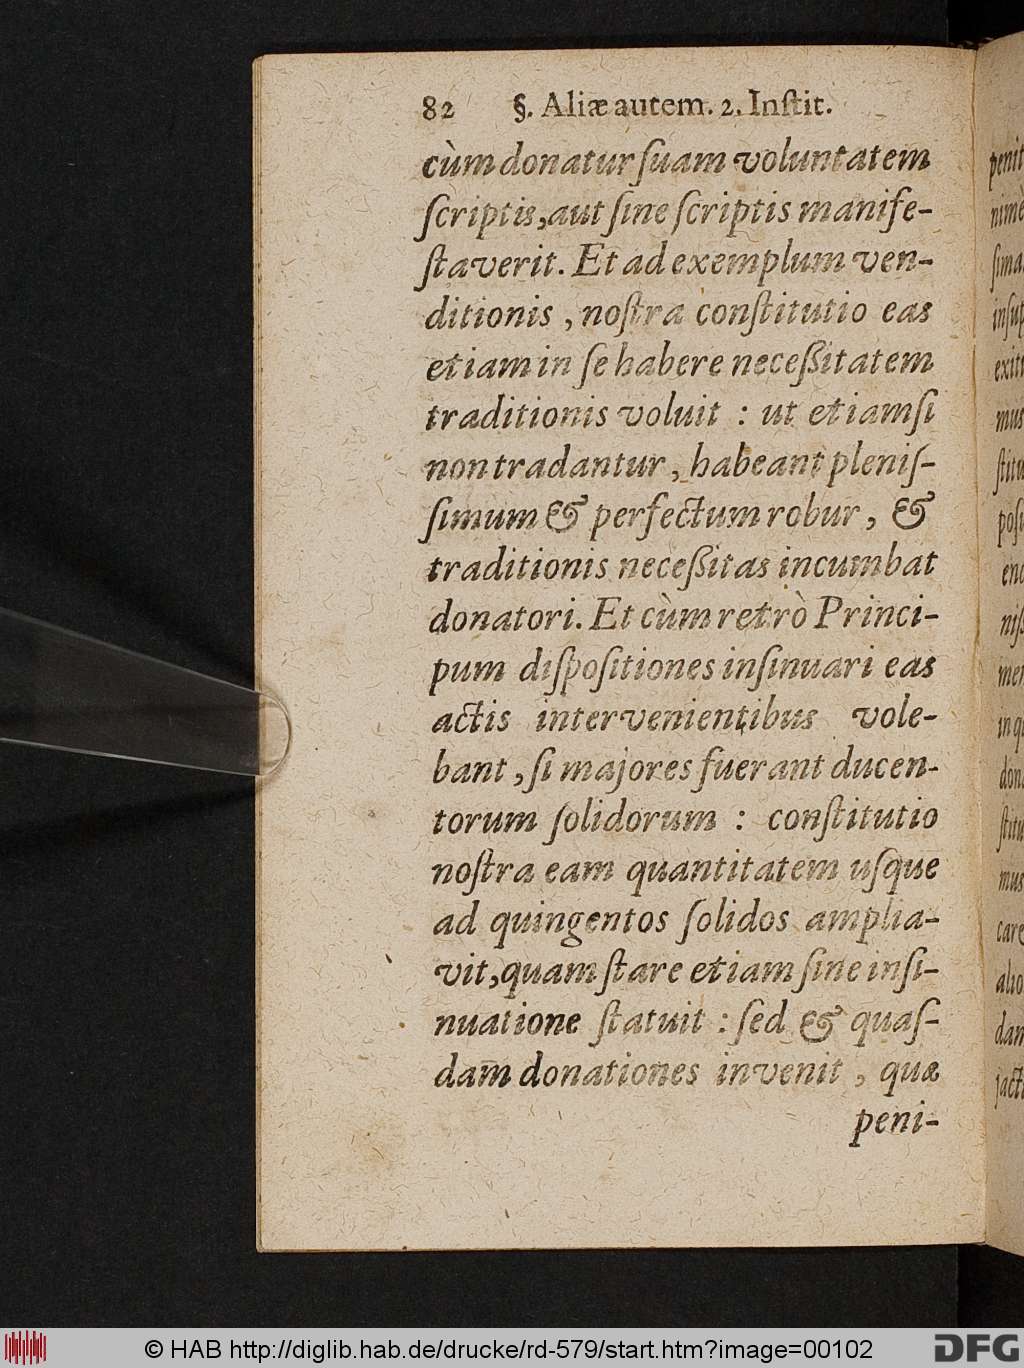 82 §. Aliæ autem. 2. Inſtit.
cùm donatur ſuam voluntatem
ſcriptis, aut ſine ſcriptis manife-
ſtaverit. Et ad exemplum ven-
ditionis, noſtra conſtitutio eas
etiam in ſe habere neceßitatem
traditionis voluit : ut etiamſi
non tradantur, habeant pleniſ-
ſimum & perfectum robur, &
traditionis neceßitas incumbat
donatori. Et cùm retrò Princi-
pum diſpoſitiones inſinuari eas
actis intervenientibus vole-
bant, ſi majores fuerant ducen-
torum ſolidorum : conſtitutio
noſtra eam quantitatem uſque
ad quingentos ſolidos amplia-
vit, quam ſtare etiam ſine inſi-
nuatione ſtatuit : ſed & quaſ-
dam donationes invenit, quæ
peni-
penit
nimè
ſima
inſup
exiti
mus
ſtitu
poſi
end
niß
men
in qu
don
ſtitu
mus
care
alio
dam
jact
© HAB http://diglib.hab.de/drucke/rd-579/start.htm?image=00102
DFG